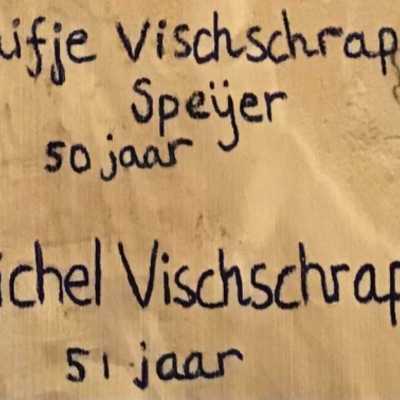 uifje Vischschrap
Speÿer
50 jaar
ichel Vischschrap
51 jaar